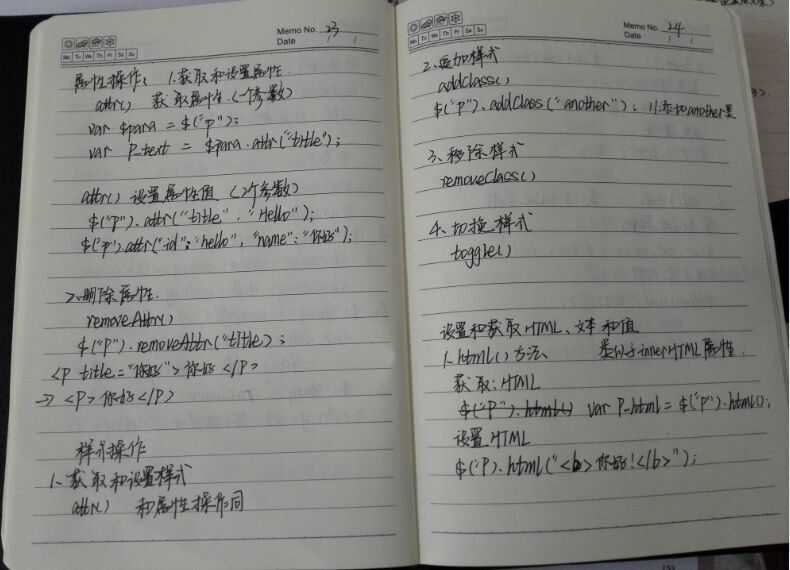 Memo No. 23
Mo Tu We Th Fr Sa Su
Date / /
属性操作: 1.获取和设置属性.
attr() 获取属性.(一个参数)
var $para = $("p");
var p_text = $para.attr("title");
attr() 设置属性值 (2个参数)
$("p").attr("title", "Hello");
$("p").attr("id": "hello", "name": "你好");
2.删除属性.
removeAttr()
$("p").removeAttr("title);
<p title="你好">你好</p>
-> <p>你好</p>
样式操作
1、获取和设置样式
attr() 和属性操作同
Memo No. 24
Mo Tu We Th Fr Sa Su
Date / /
2、追加样式
addClass()
$("p").addClass("another"); //添加another类
3、移除样式
removeClass()
4、切换样式
toggle()
设置和获取HTML、文本和值
1.html()方法、 类似于innerHTML属性.
获取:HTML
$("P").html() var P_html = $("P").html();
设置HTML
$("P).html("<b>你好!</b>");